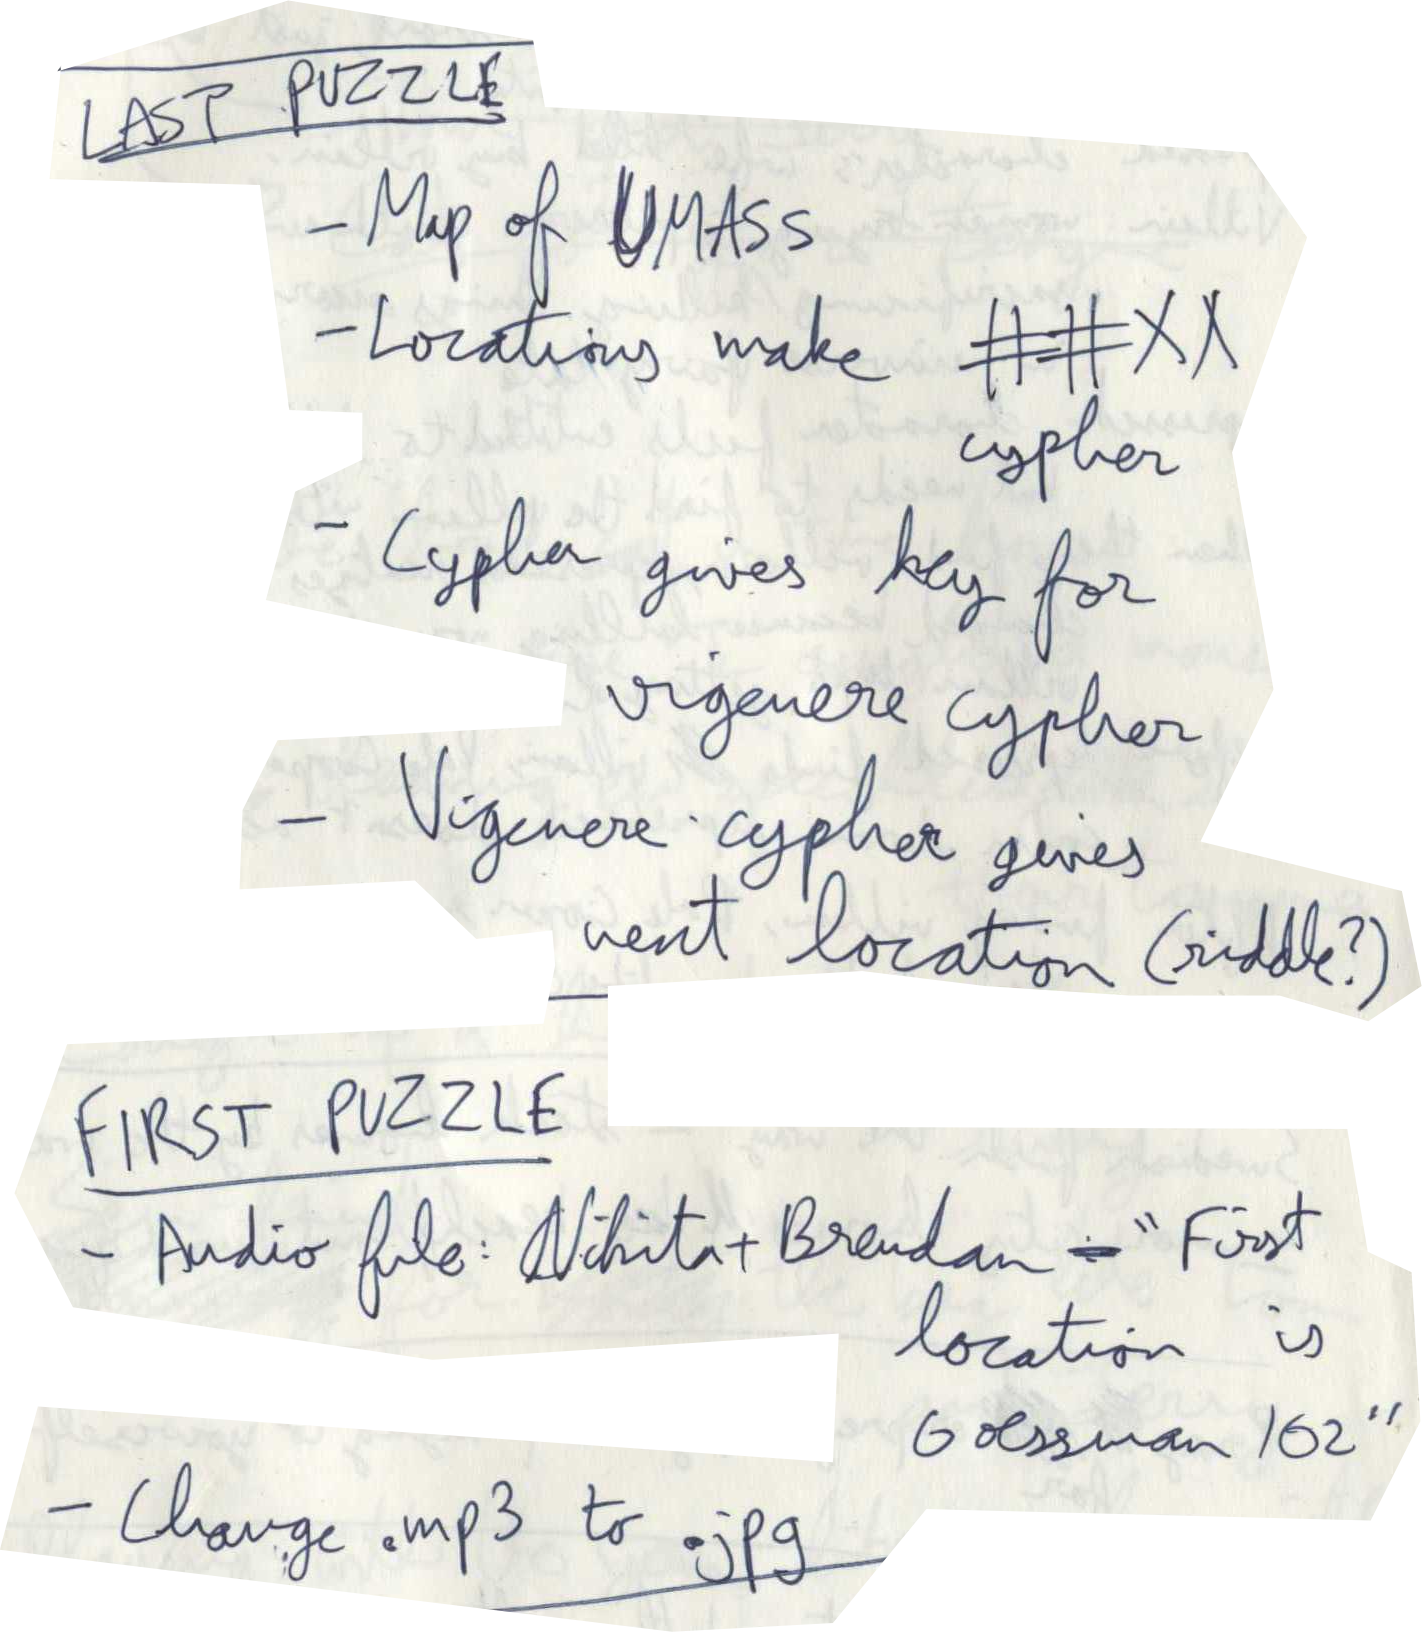 LAST PUZZLE
- Map of UMASS
- Locations make ##XX
cypher
- Cypher gives key for
vigenere cypher
- Vigenere cypher gives
next location (riddle?)
FIRST PUZZLE
- Audio file: Nikita + Brendan - "First
location is
Goessman 102"
- Change .mp3 to .jpg